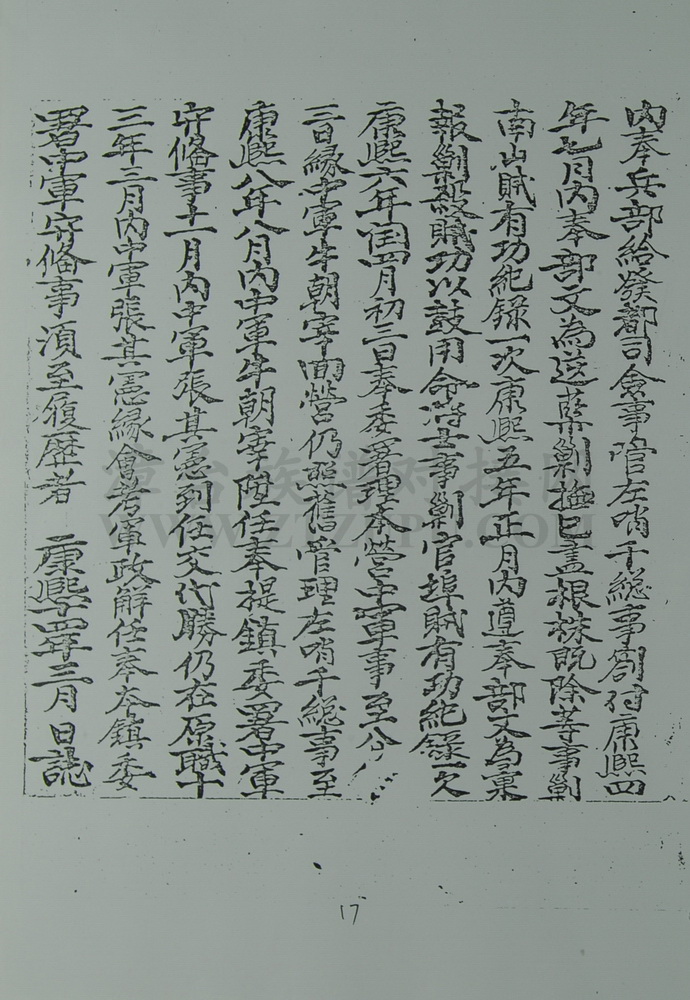 内奉兵部給發都司僉事管左哨千総事劄付康熙四
年七月内奉部文為逆孽剿撫已盡根株既除等事剿
南山賊有功紀錄一次康熙五年正月内遵奉部文為稟
報剿殺賊功以鼓用命将士事剿官埠賊有功紀錄一次
康熙六年闰四月初三日奉委署理本營中軍事至八
三日縁中軍牛朝宰囬營仍照舊管理左哨千総事至
康熙八年八月内中軍牛朝宰陞任奉提鎮委署中軍
守俻事十一月内中軍張其憲到任交代勝仍在原職十
三年三月内中軍張其憲縁會考軍政解任奉本鎮委
署中軍守俻事須至履歷者 康熙十四年三月 日誌
17